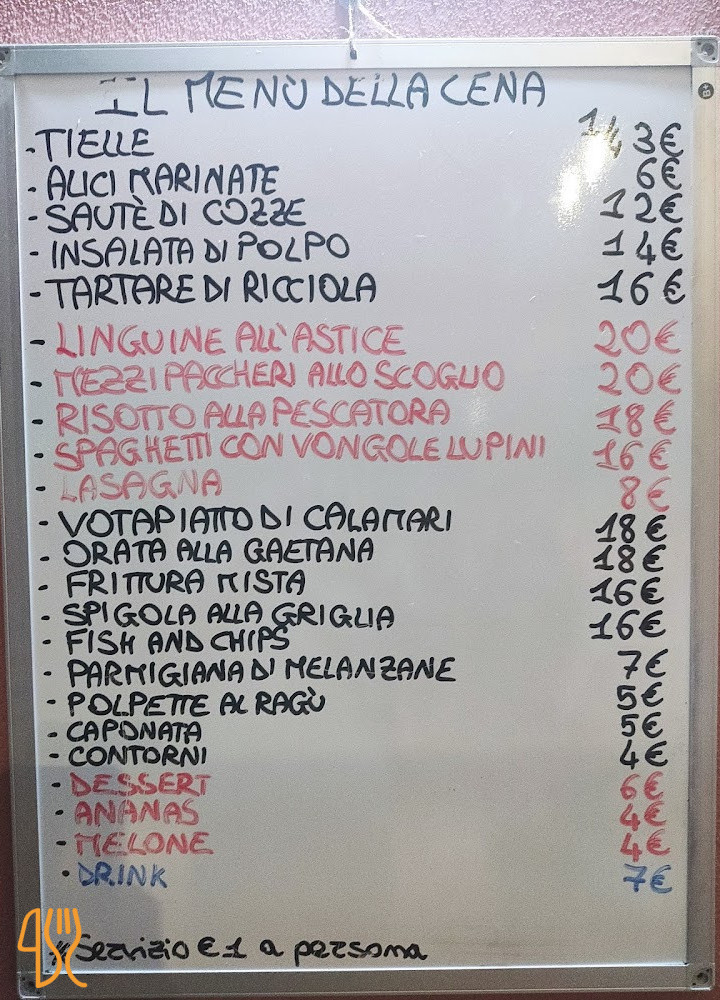 IL MENÙ DELLA CENA
- TIELLE 1/4 3€
- ALICI MARINATE 6€
- SAUTÈ DI COZZE 12€
- INSALATA DI POLPO 14€
- TARTARE DI RICCIOLA 16€
- LINGUINE ALL'ASTICE 20€
- MEZZI PACCHERI ALLO SCOGLIO 20€
- RISOTTO ALLA PESCATORA 18€
- SPAGHETTI CON VONGOLE LUPINI 16€
- LASAGNA 8€
- VOTAPIATTO DI CALAMARI 18€
- ORATA ALLA GAETANA 18€
- FRITTURA MISTA 16€
- SPIGOLA ALLA GRIGLIA 16€
- FISH AND CHIPS
- PARMIGIANA DI MELANZANE 7€
- POLPETTE AL RAGÙ 5€
- CAPONATA 5€
- CONTORNI 4€
- DESSERT 6€
- ANANAS 4€
- MELONE 4€
• DRINK 7€
* Servizio €1 a persona